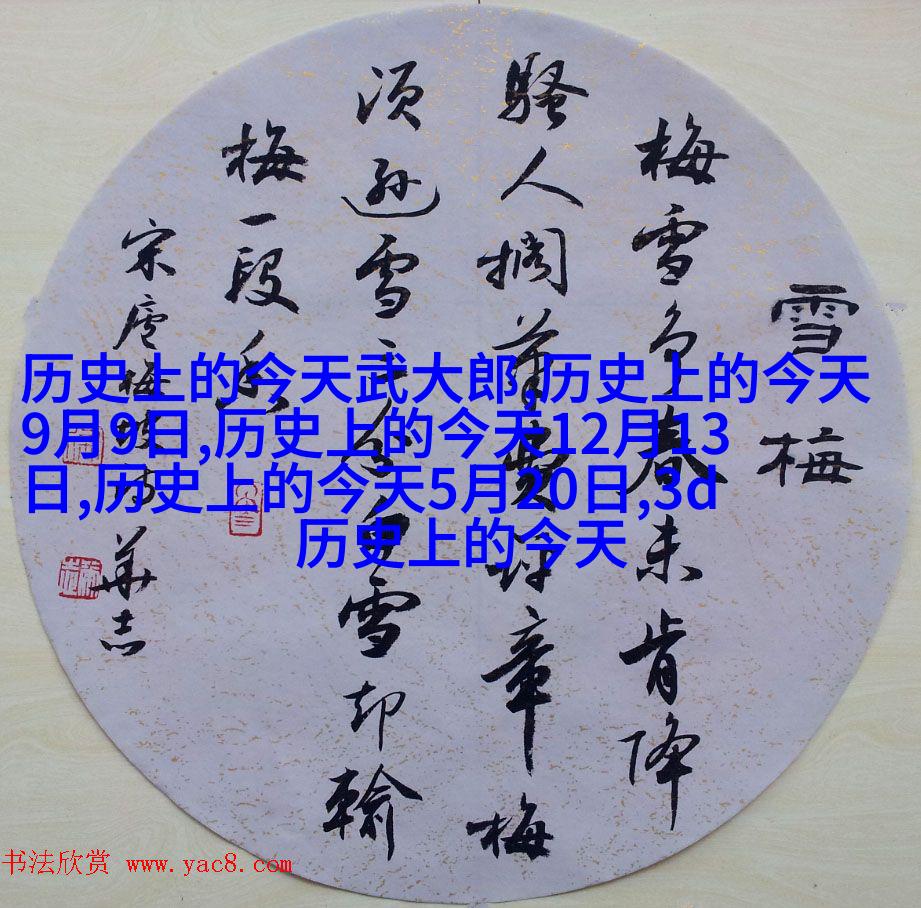 历史上的今天武大郎,历史上的今天
9月9日,历史上的今天12月13
日,历史上的今天5月20日,3d
历史上的今天
雪梅
梅雪争春未肯降
骚人搁笔费评章梅
须逊雪三分白雪却输
梅一段香
宋卢梅坡诗 华志
书法欣赏 www.yac8.com